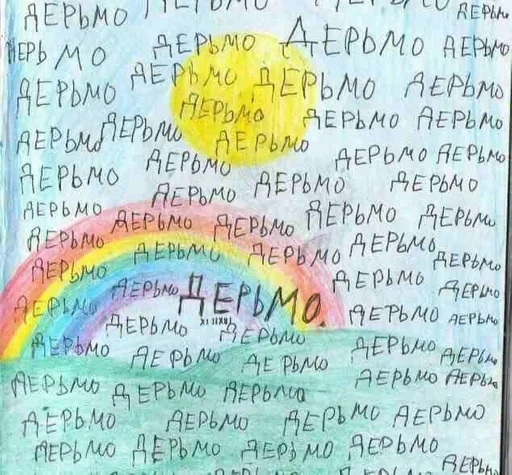 ДЕРЬМО ДЕРЬМО ДЕРЬМО ДЕРЬМО
ДЕРЬМО ДЕРЬМО ДЕРЬМО ДЕРЬМО
ДЕРЬМО ДЕРЬМО ДЕРЬМО ДЕРЬМО
ДЕРЬМО ДЕРЬМО ДЕРЬМО
ДЕРЬМО ДЕРЬМО ДЕРЬМО
ДЕРЬМО ДЕРЬМО ДЕРЬМО
ДЕРЬМО ДЕРЬМО ДЕРЬМО
ДЕРЬМО ДЕРЬМО
ДЕРЬМО ДЕРЬМО ДЕРЬМО ДЕРЬМО ДЕРЬМО
ДЕРЬМО ДЕРЬМО ДЕРЬМО ДЕРЬМО
ДЕРЬМО ДЕРЬМО
ДЕРЬМО ДЕРЬМО ДЕРЬМО ДЕРЬМО
ДЕРЬМО ДЕРЬМО ДЕРЬМО
ДЕРЬМО ДЕРЬМО
ДЕРЬМО ДЕРЬМО ДЕРЬМО ДЕРЬМО
ДЕРЬМО ДЕРЬМО ДЕРЬМО ДЕРЬМО
ДЕРЬМО ДЕРЬМО ДЕРЬМО ДЕРЬМО
ДЕРЬМО ДЕРЬМО ДЕРЬМО ДЕРЬМО
ДЕРЬМО